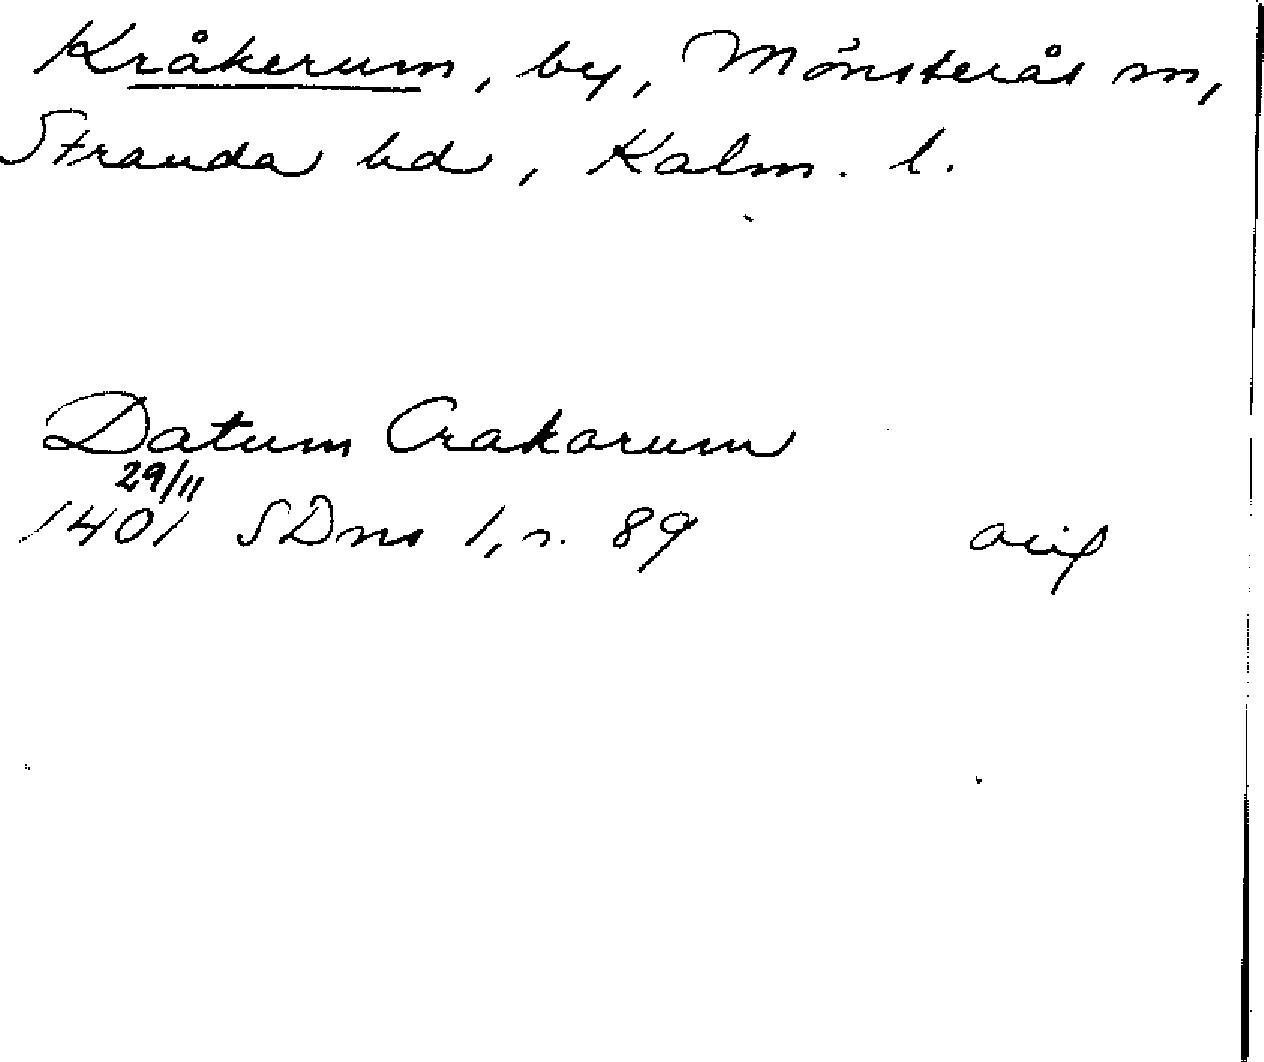 Kråkerum, by, Mönsterås sn,
Stranda hd, Kalm. l.
Datum Crakarum
29/11
1401 SDns 1, s. 89 avs